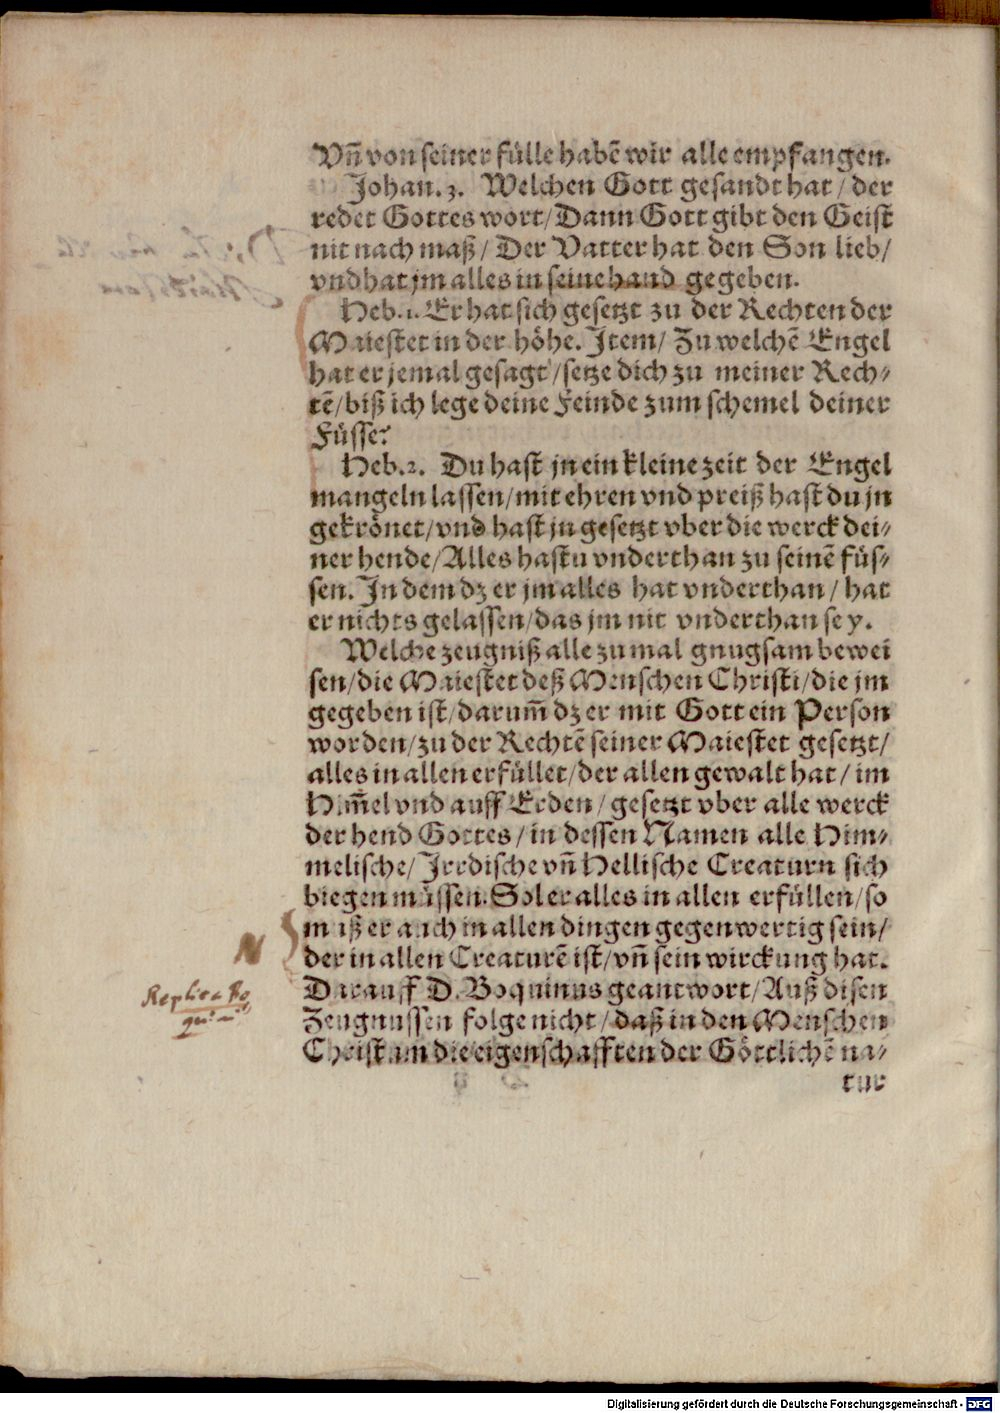 Vñ von seiner fülle habẽ wir alle empfangen.
Johan. 3. Welchen Gott gesandt hat / der
redet Gottes wort / Dann Gott gibt den Geist
nit nach maß / Der Vatter hat den Son lieb /
vnd hat jm alles in seine hand gegeben.
Heb. 1. Er hat sich gesetzt zu der Rechten der
Maiestet in der höhe. Item / Zu welchẽ Engel
hat er jemal gesagt / setze dich zu meiner Rech-
tẽ / biß ich lege deine Feinde zum schemel deiner
Füsse?
Heb. 2. Du hast jn ein kleine zeit der Engel
mangeln lassen / mit ehren vnd preiß hast du jn
gekrönet / vnd hast jn gesetzt vber die werck dei-
ner hende / Alles hastu vnderthan zu seinẽ füs-
sen. In dem dz er jm alles hat vnderthan / hat
er nichts gelassen / das jm nit vnderthan sey.
Welche zeugniß alle zumal gnugsam bewei
sen / die Maiestet deß Menschen Christi / die jm
gegeben ist / darum̃ dz er mit Gott ein Person
worden / zu der Rechtẽ seiner Maiestet gesetzt /
alles in allen erfüllet / der allen gewalt hat / im
Him̃el vnd auff Erden / gesetzt vber alle werck
der hend Gottes / in dessen Namen alle Him-
melische / Irrdische vñ Hellische Creaturn sich
biegen müssen. Sol er alles in allen erfüllen / so
muß er auch in allen dingen gegenwertig sein /
N
der in allen Creaturẽ ist / vñ sein wirckung hat.
Replica Bo
quini
Darauff D. Boquinus geantwort / Auß disen
Zeugnussen folge nicht / daß in den Menschen
Christum die eigenschafften der Göttlichẽ na-
tur
Digitalisierung gefördert durch die Deutsche Forschungsgemeinschaft - DFG